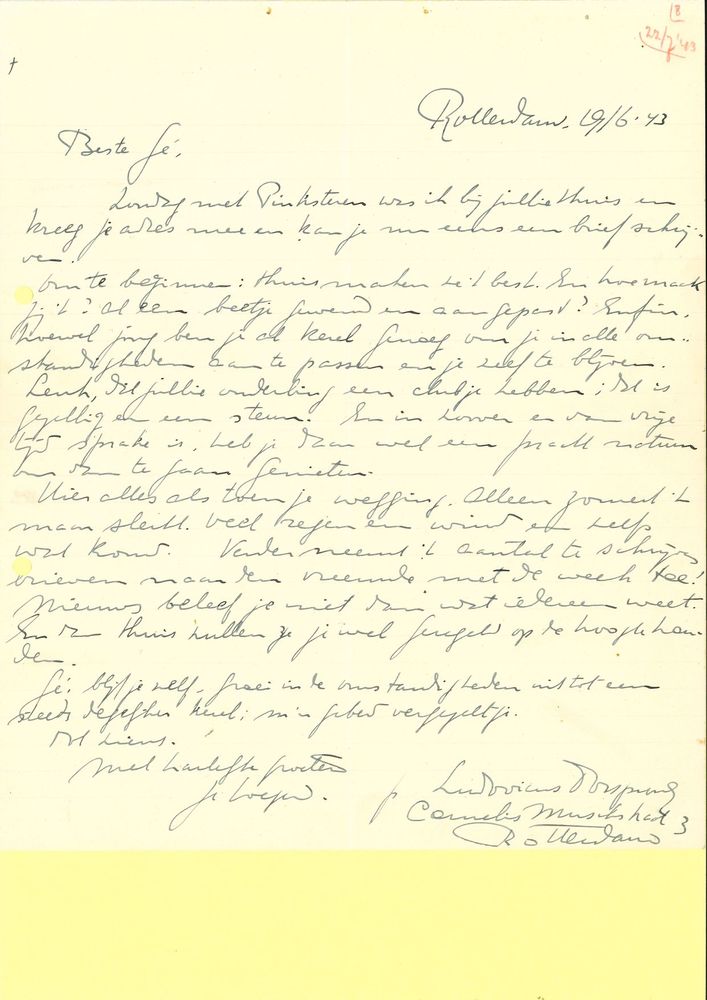 8
22/7 '43
†
Rotterdam, 19/6-43
Beste Gé,
Zondag met Pinksteren was ik bij jullie thuis en
kreeg je adres mee en kan je nu eens een brief schrij-
ven.
Om te beginnen: thuis maken ze 't best. En hoe maak
jij 't? Al een beetje gewend en aangepast? Enfin,
hoewel jong ben je al kerel genoeg om je in alle om-
standigheden aan te passen en je zelf te blijven.
Leuk, dat jullie onderling een clubje hebben; dat is
gezellig en een steun. En in zover er van vrije
tijd sprake is, heb je daar wel een pracht natuur
om van te gaan genieten.
Hier alles als toen je wegging. Alleen zomert 't
maar slecht. Veel regen en wind en zelfs
wat koud. Verder neemt 't aantal te schrijven
brieven naar den vreemde met de week toe!
Nieuws beleef je niet dan wat iedereen weet.
En van thuis zullen ze je wel geregeld op de hoogte hou-
den.
Gé, blijf je zelf, groei in de omstandigheden uit tot een
steeds degelijker kerel; in m'n gebed vergeet je
niet eens.
Met hartelijke groeten
je toegen.
p Ludovicus Vorsprong
Cornelis Muschstraat 3
Rotterdam